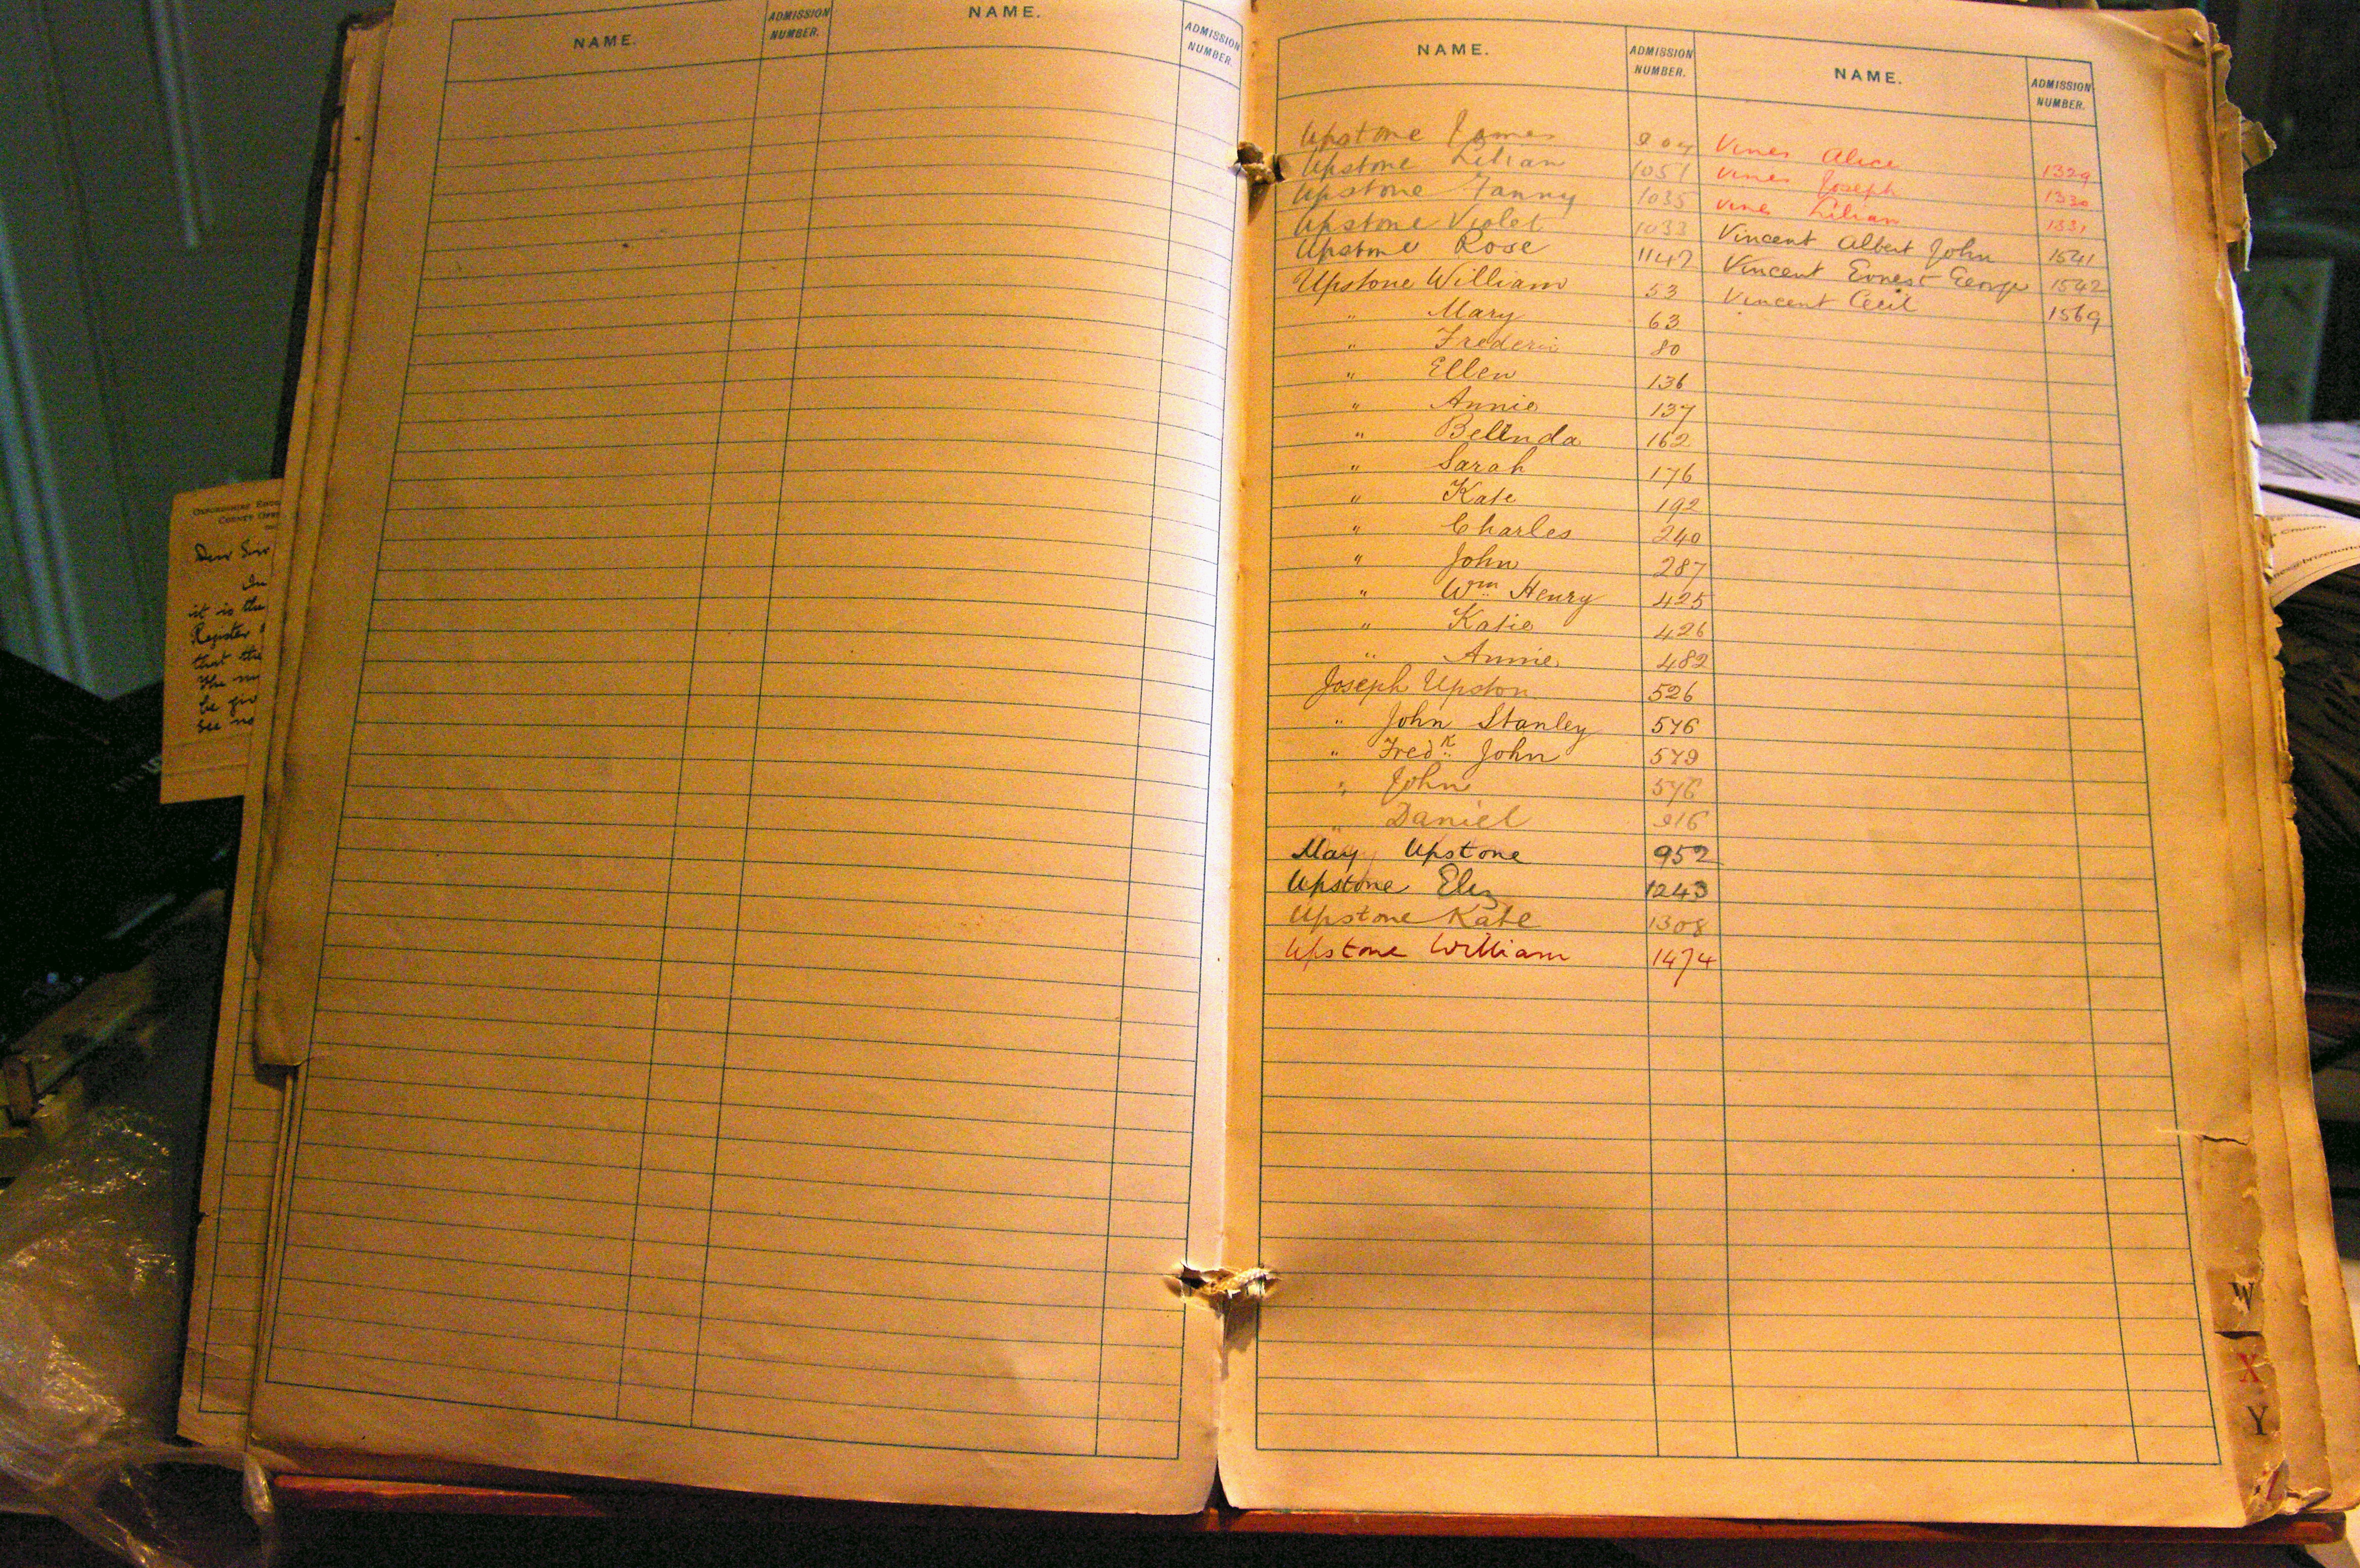 NAME. ADMISSION NUMBER. NAME. ADMISSION NUMBER.
OXFORDSHIRE
COUNTY
Dear Sir
it is the
Register
that the
The
be
See no
NAME. ADMISSION NUMBER. NAME. ADMISSION NUMBER.
Upstone James
Upstone Lilian 1051
Upstone Fanny 1035
Upstone Violet 1033
Upstone Rose 1147
Upstone William 53
" Mary 63
" Frederic 80
" Ellen 136
" Annie 137
" Belinda 162
" Sarah 176
" Kate 192
" Charles 240
" John 287
" Wm Henry 425
" Katie 426
" Annie 482
Joseph Upston 526
" John Stanley 576
" Fredk John 579
" John 576
" Daniel
May Upstone 952
Upstone Eliz 1243
Upstone Kate 1308
Upstone William 1474
Vines Alice 1329
Vines Joseph 1330
Vines Lilian 1331
Vincent Albert John 1541
Vincent Ernest George 1542
Vincent Cecil 1569
W
X
Y